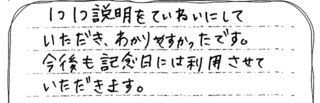 1つ1つ説明をていねいにして
いただき、わかりやすかったです。
今後も記念日には利用させて
いただきます。